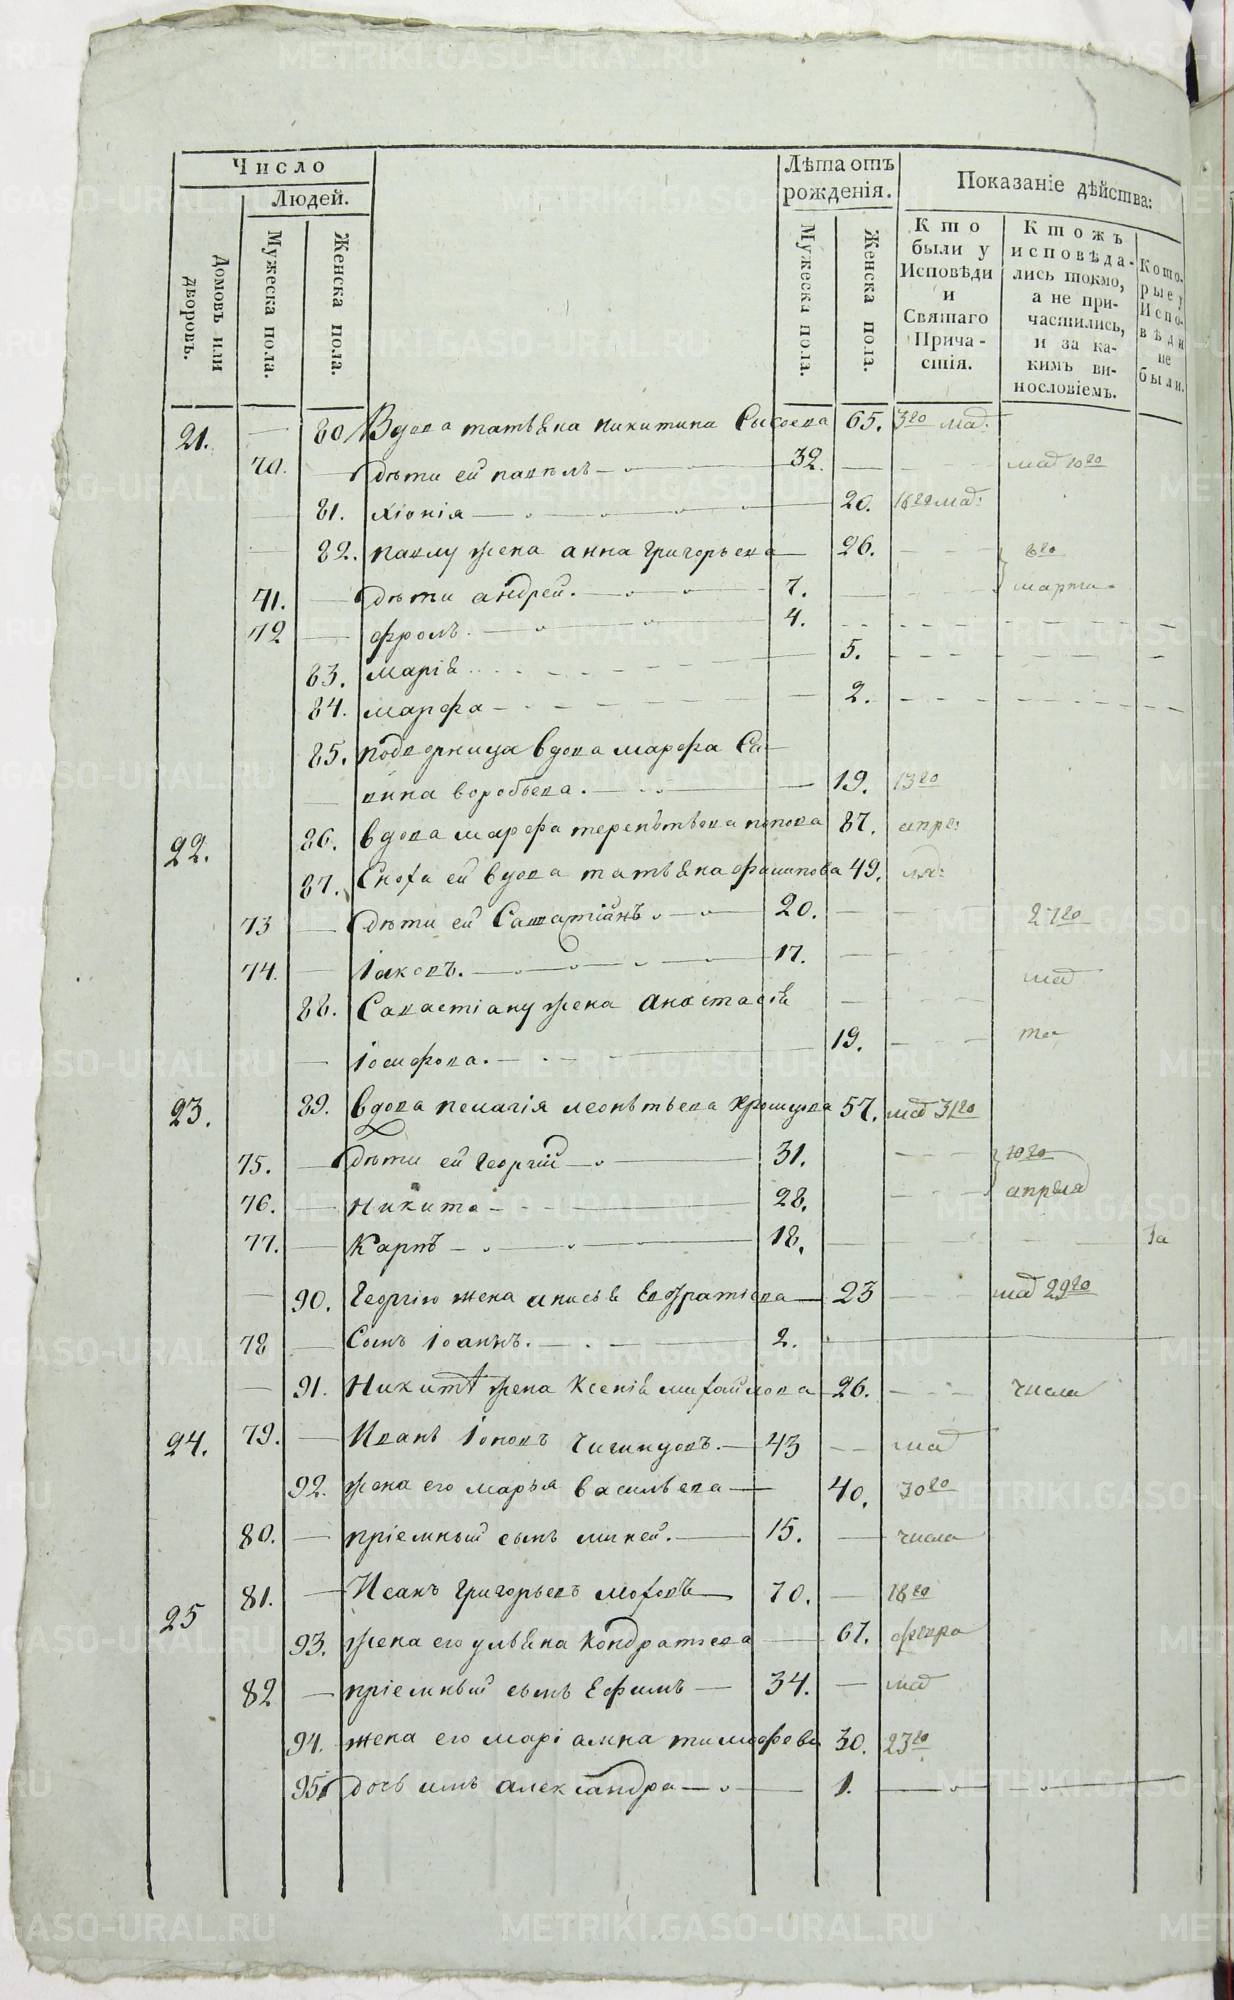 Число
Людей.
Домовъ или дворовъ.
Мужеска пола.
Женска пола.
Лѣта отъ рожденія.
Мужеска пола.
Женска пола.
Показаніе дѣйства:
Кто были у Исповѣди и Святаго Прича-стія.
Ктожъ исповѣда-лись токмо, а не при-частились, и за ка-кимъ ви-нословіемъ.
Кото-рые у Испо-вѣди не были.
21. — 80 Вдова татьѣна никитина Сысоева 65. 3го маѣ:
70. — дѣти ей павелъ — 32. — маѣ 10го
81. хіонія — 20. маѣ:
— 82. павлу жена анна григорьева — 26. 8го
71. — дѣти андрей. — 7. — марта
72 — фролъ. — 4.
83. маріѣ 5.
84. марфа — 2.
85. подворница вдова марфа Са-
— вина воробьева. — 19. 13го
22. 86. вдова марфа терентьева попова 87. апре:
87. Сноха ей вдова татьѣна филипова 49. ля:
73 — дѣти ей Савастіанъ — 20. — 27го
74. — Іаковъ. — 17. — маѣ
88. Савастіану жена Анастасіѣ
— Іосифова. — 19.
23. 89. вдова пелагія леонтьева хромцова 57. маѣ 31го
75. — дѣти ей георгій — 31. 10го
76. — Никита — 28. апреля
77. — Карпъ — 18. — 1а
— 90. Георгію жена анисьѣ Евфратіева — 23 маѣ 29го
78 — Сынъ Іоаннъ. — 2.
— 91. Никитѣ жена Ксеніѣ михайлова 26. числа
24. 79. — Иванъ Іоновъ Чигинцовъ. — 43 — маѣ
92. жена его марья васильева — 40. 30го
80. — пріемный сынъ миней. — 15. — числа
25 81. — Исакъ григорьевъ моховъ — 70. — 18го
93. жена его ульѣна Кондратьева — 67. февра
82 — пріемный сынъ Ефимъ — 34. — маѣ
94. жена его маріамна тимофева 30. 23го
95. дочь имъ александра — 1.
METRIKI.GASO-URAL.RU